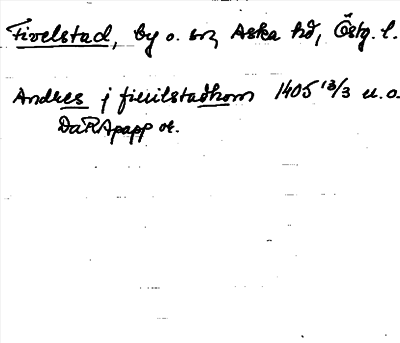 Fivelstad, by o. sn, Aska hd, Östg. l.
Andres j fiuilstadhom 1405 13/3 u. o.
DaRApapp or.